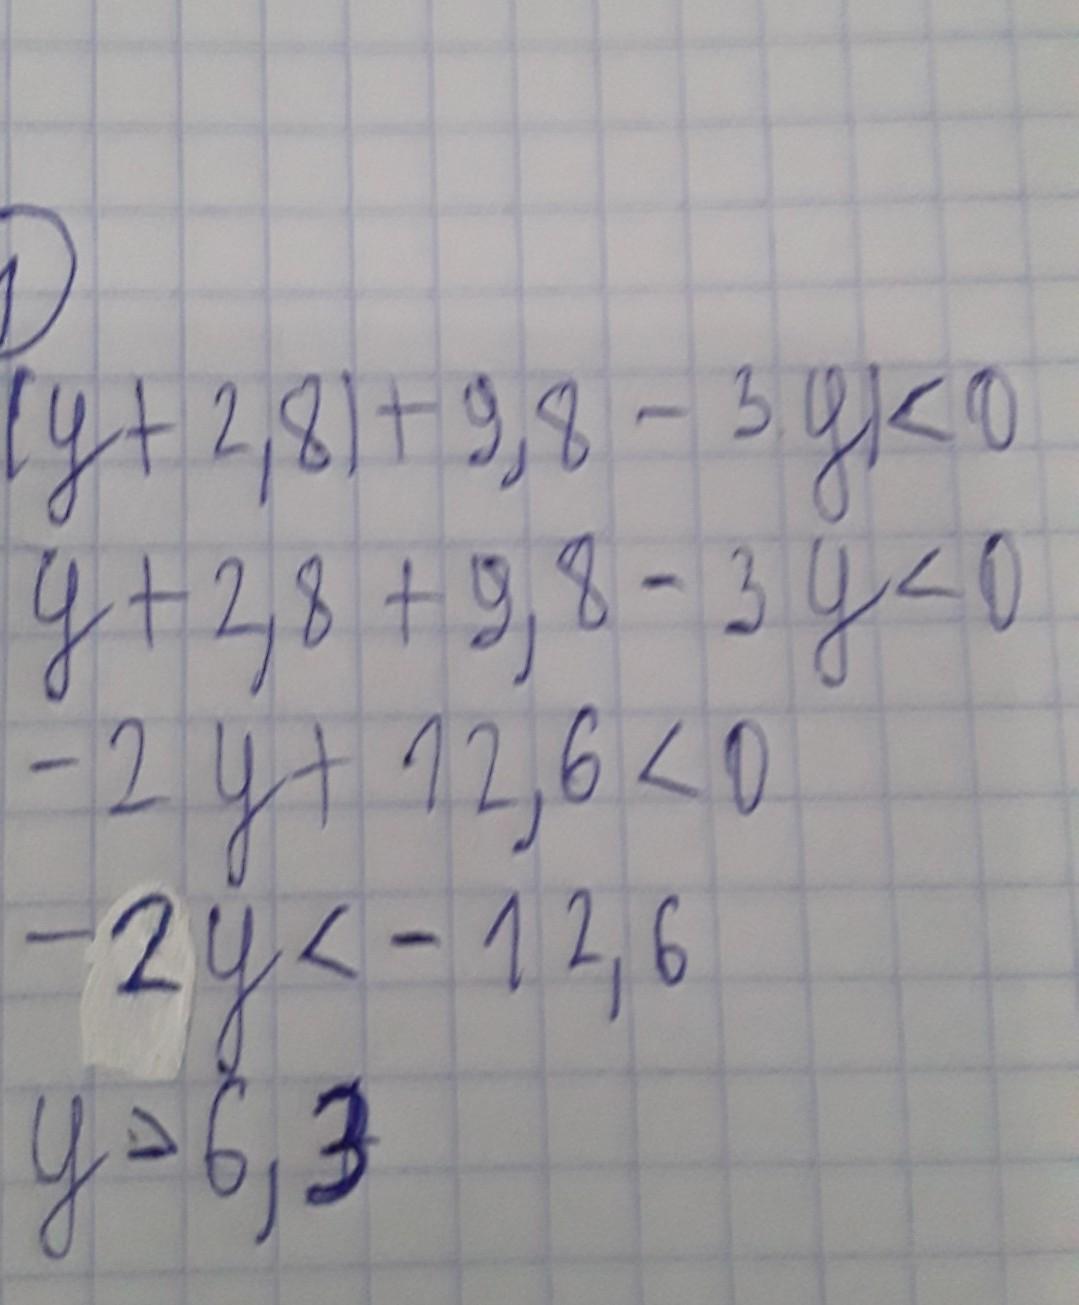 1
(y + 2,8) + 9,8 - 3y) < 0
y + 2,8 + 9,8 - 3y < 0
-2y + 12,6 < 0
-2y < -12,6
y > 6,3